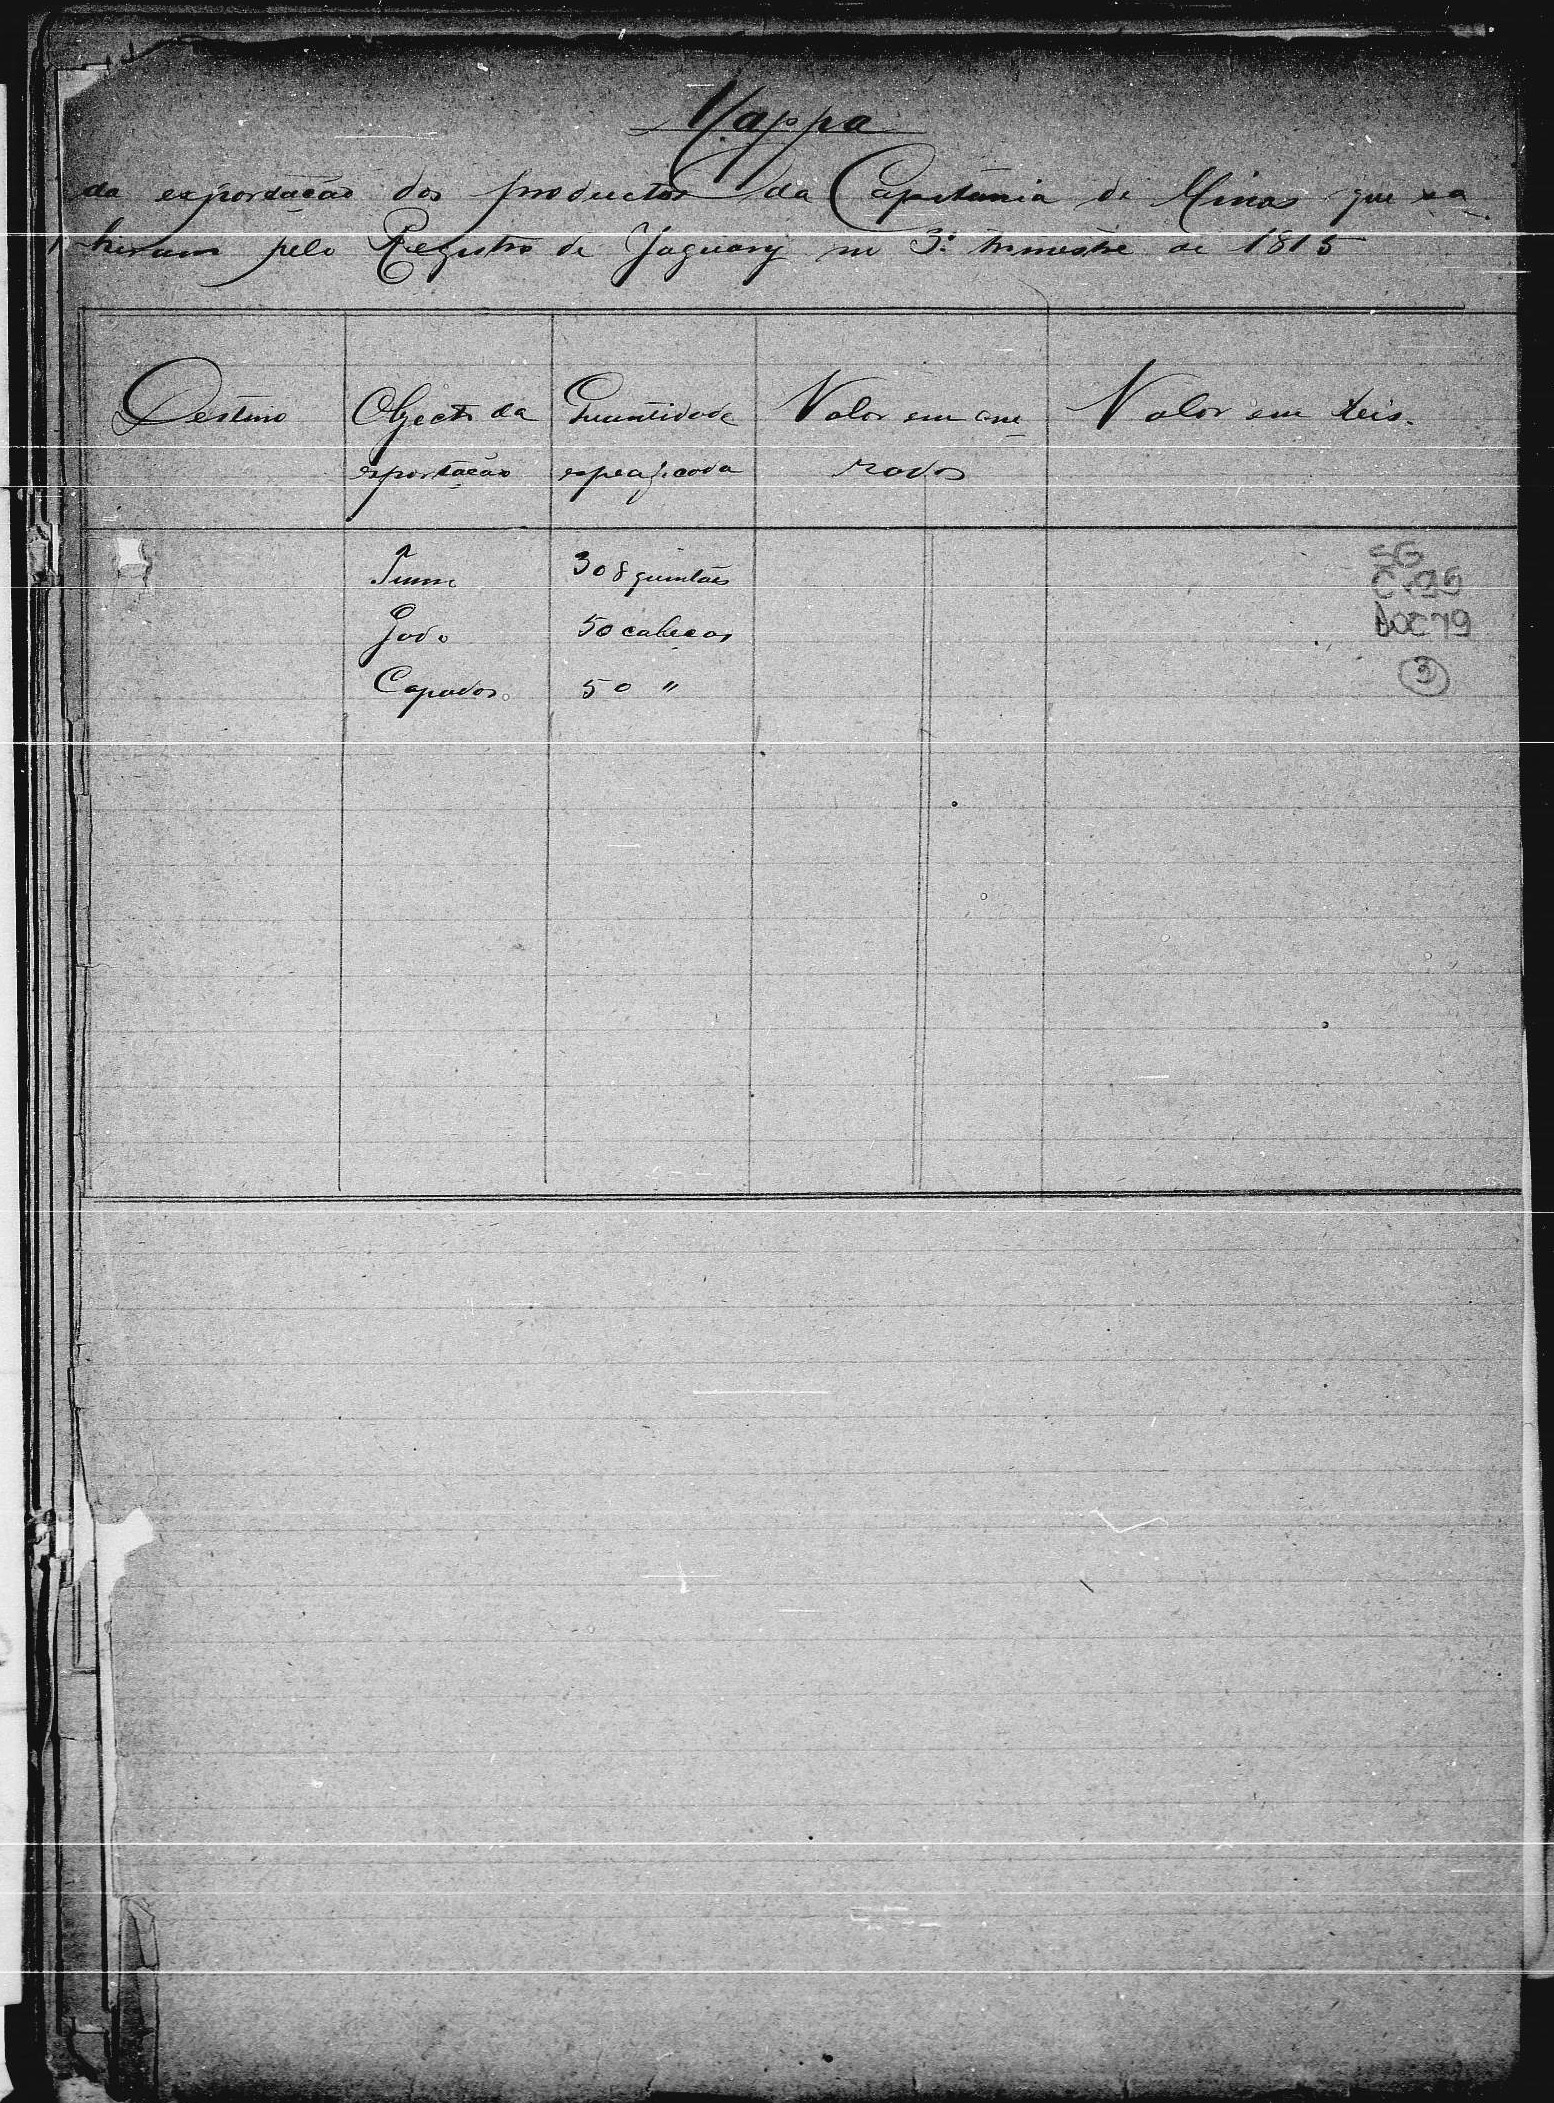 Mappa
da exportação dos productos da Capitania de Minas que sa
hiram pelo Registro de Jaguary no 3º trimestre de 1815
Destino Objecto da Quantidade Valor em cru Valor em Reis.
exportação especificada zados
Fumo 308 quintães
Gado 50 cabeças
Capados 50 "
SG
Cx96
DOC79
3